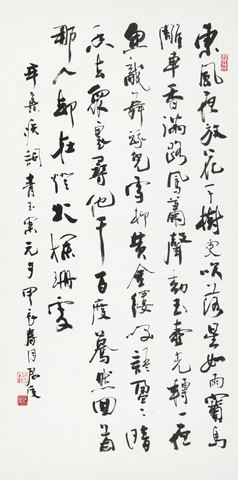 東風夜放花千樹更吹落星如雨寶馬
雕車香滿路鳳簫聲動玉壺光轉一夜
魚龍舞蛾兒雪柳黃金縷笑語盈〻暗
香去眾裏尋他千百度驀然回首
那人却在燈火闌珊處
辛棄疾詞青玉案元夕甲辰春月